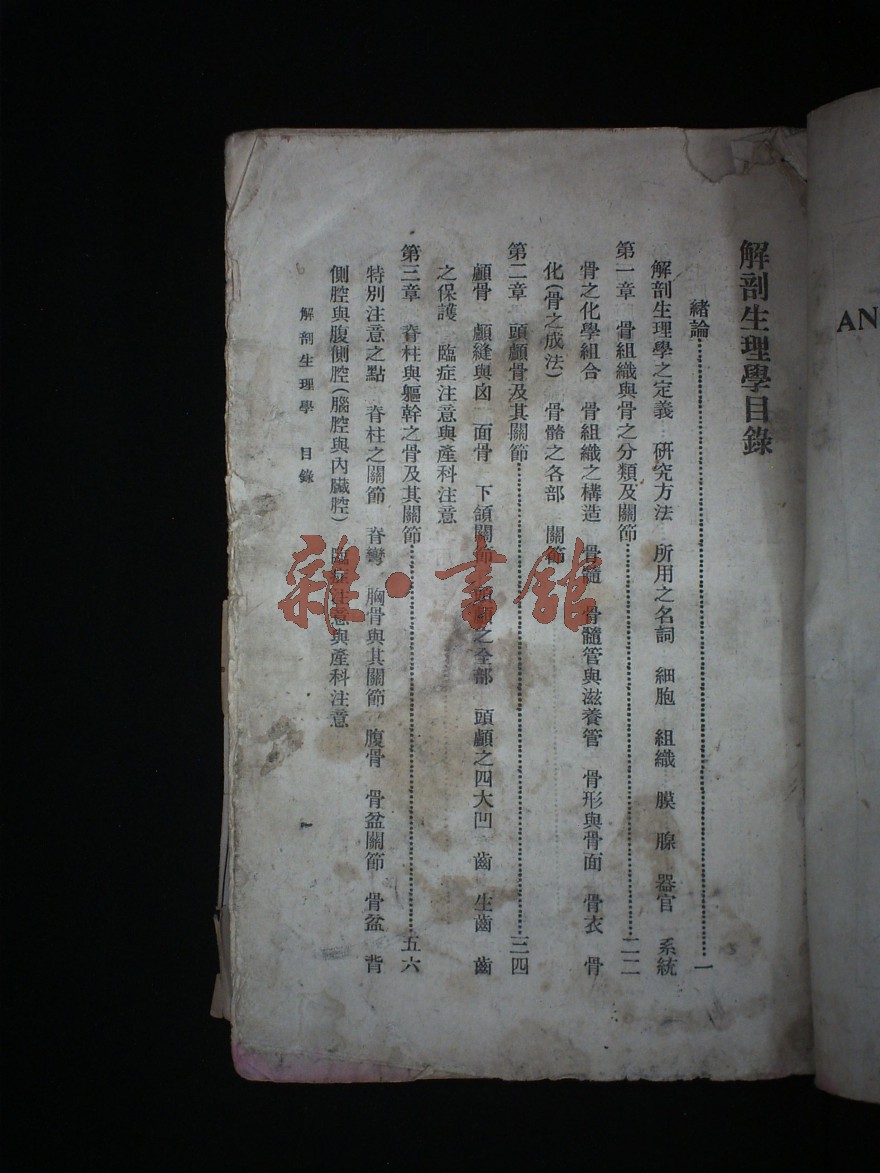 解剖生理學目錄
緒論……一
解剖生理學之定義 硏究方法 所用之名詞 細胞 組織 膜 腺 器官 系統
第一章 骨組織與骨之分類及關節……二二
骨之化學組合 骨組織之構造 骨髓 骨髓管與滋養管 骨形與骨面 骨衣 骨
化(骨之成法) 骨骼之各部 關節
第二章 頭顱骨及其關節……三四
顱骨 顱縫與囟 面骨 下頜關節 之全部 頭顱之四大凹 齒 生齒 齒
之保護 臨症注意與產科注意
第三章 脊柱與軀幹之骨及其關節……五六
特別注意之點 脊柱之關節 脊彎 胸骨與其關節 腹骨 骨盆關節 骨盆 背
側腔與腹側腔(腦腔與內臟腔) 臨症注意與產科注意
解剖生理學 目錄
一
AN
雜·書館